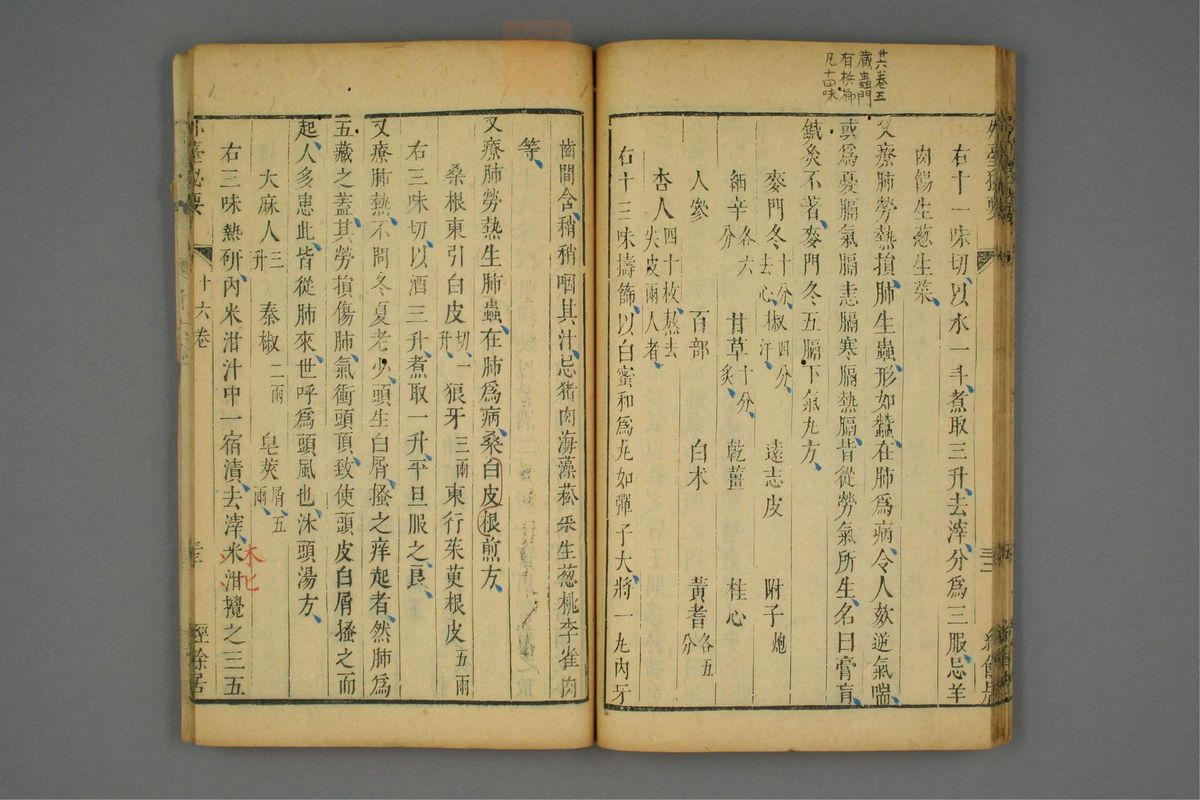 廿六卷五
蔵蟲門
有梹榔
凡十四味
右十一味切以水一斗煮取三升去滓分爲三服忌羊
肉餳生葱生菜
又療肺勞熱損肺生蟲形如蠶在肺爲病令人欬逆氣喘
或爲憂膈氣膈恚膈寒膈熱膈皆從勞氣所生名曰膏肓
鍼灸不著麥門冬五膈下氣丸方
麥門冬十分去心 椒四分汗 遠志皮 附子炮
細辛各六分 甘草十分炙 乾薑 桂心
人參 百部 白术 黃耆各五分
杏人四十枚熬去尖皮兩人者
右十三味擣篩以白蜜和爲丸如彈子大將一丸內牙
齒間含稍稍咽其汁忌猪肉海藻菘菜生葱桃李雀肉
等
又療肺勞熱生肺蟲在肺爲病桑白皮根煎方
桑根東引白皮切一升 狼牙三兩 東行茱萸根皮五兩
右三味切以酒三升煮取一升平旦服之良
又療肺熱不問冬夏老少頭生白屑搔之痒起者然肺爲
五藏之蓋其勞損傷肺氣衝頭頂致使頭皮白屑搔之而
起人多患此皆從肺來世呼爲頭風也沐頭湯方
大麻人三升 秦椒二兩 皂莢屑五兩
右三味熟研內米泔汁中一宿漬去滓米泔攪之三五
木匕
外臺祕要
十六卷
經餘居